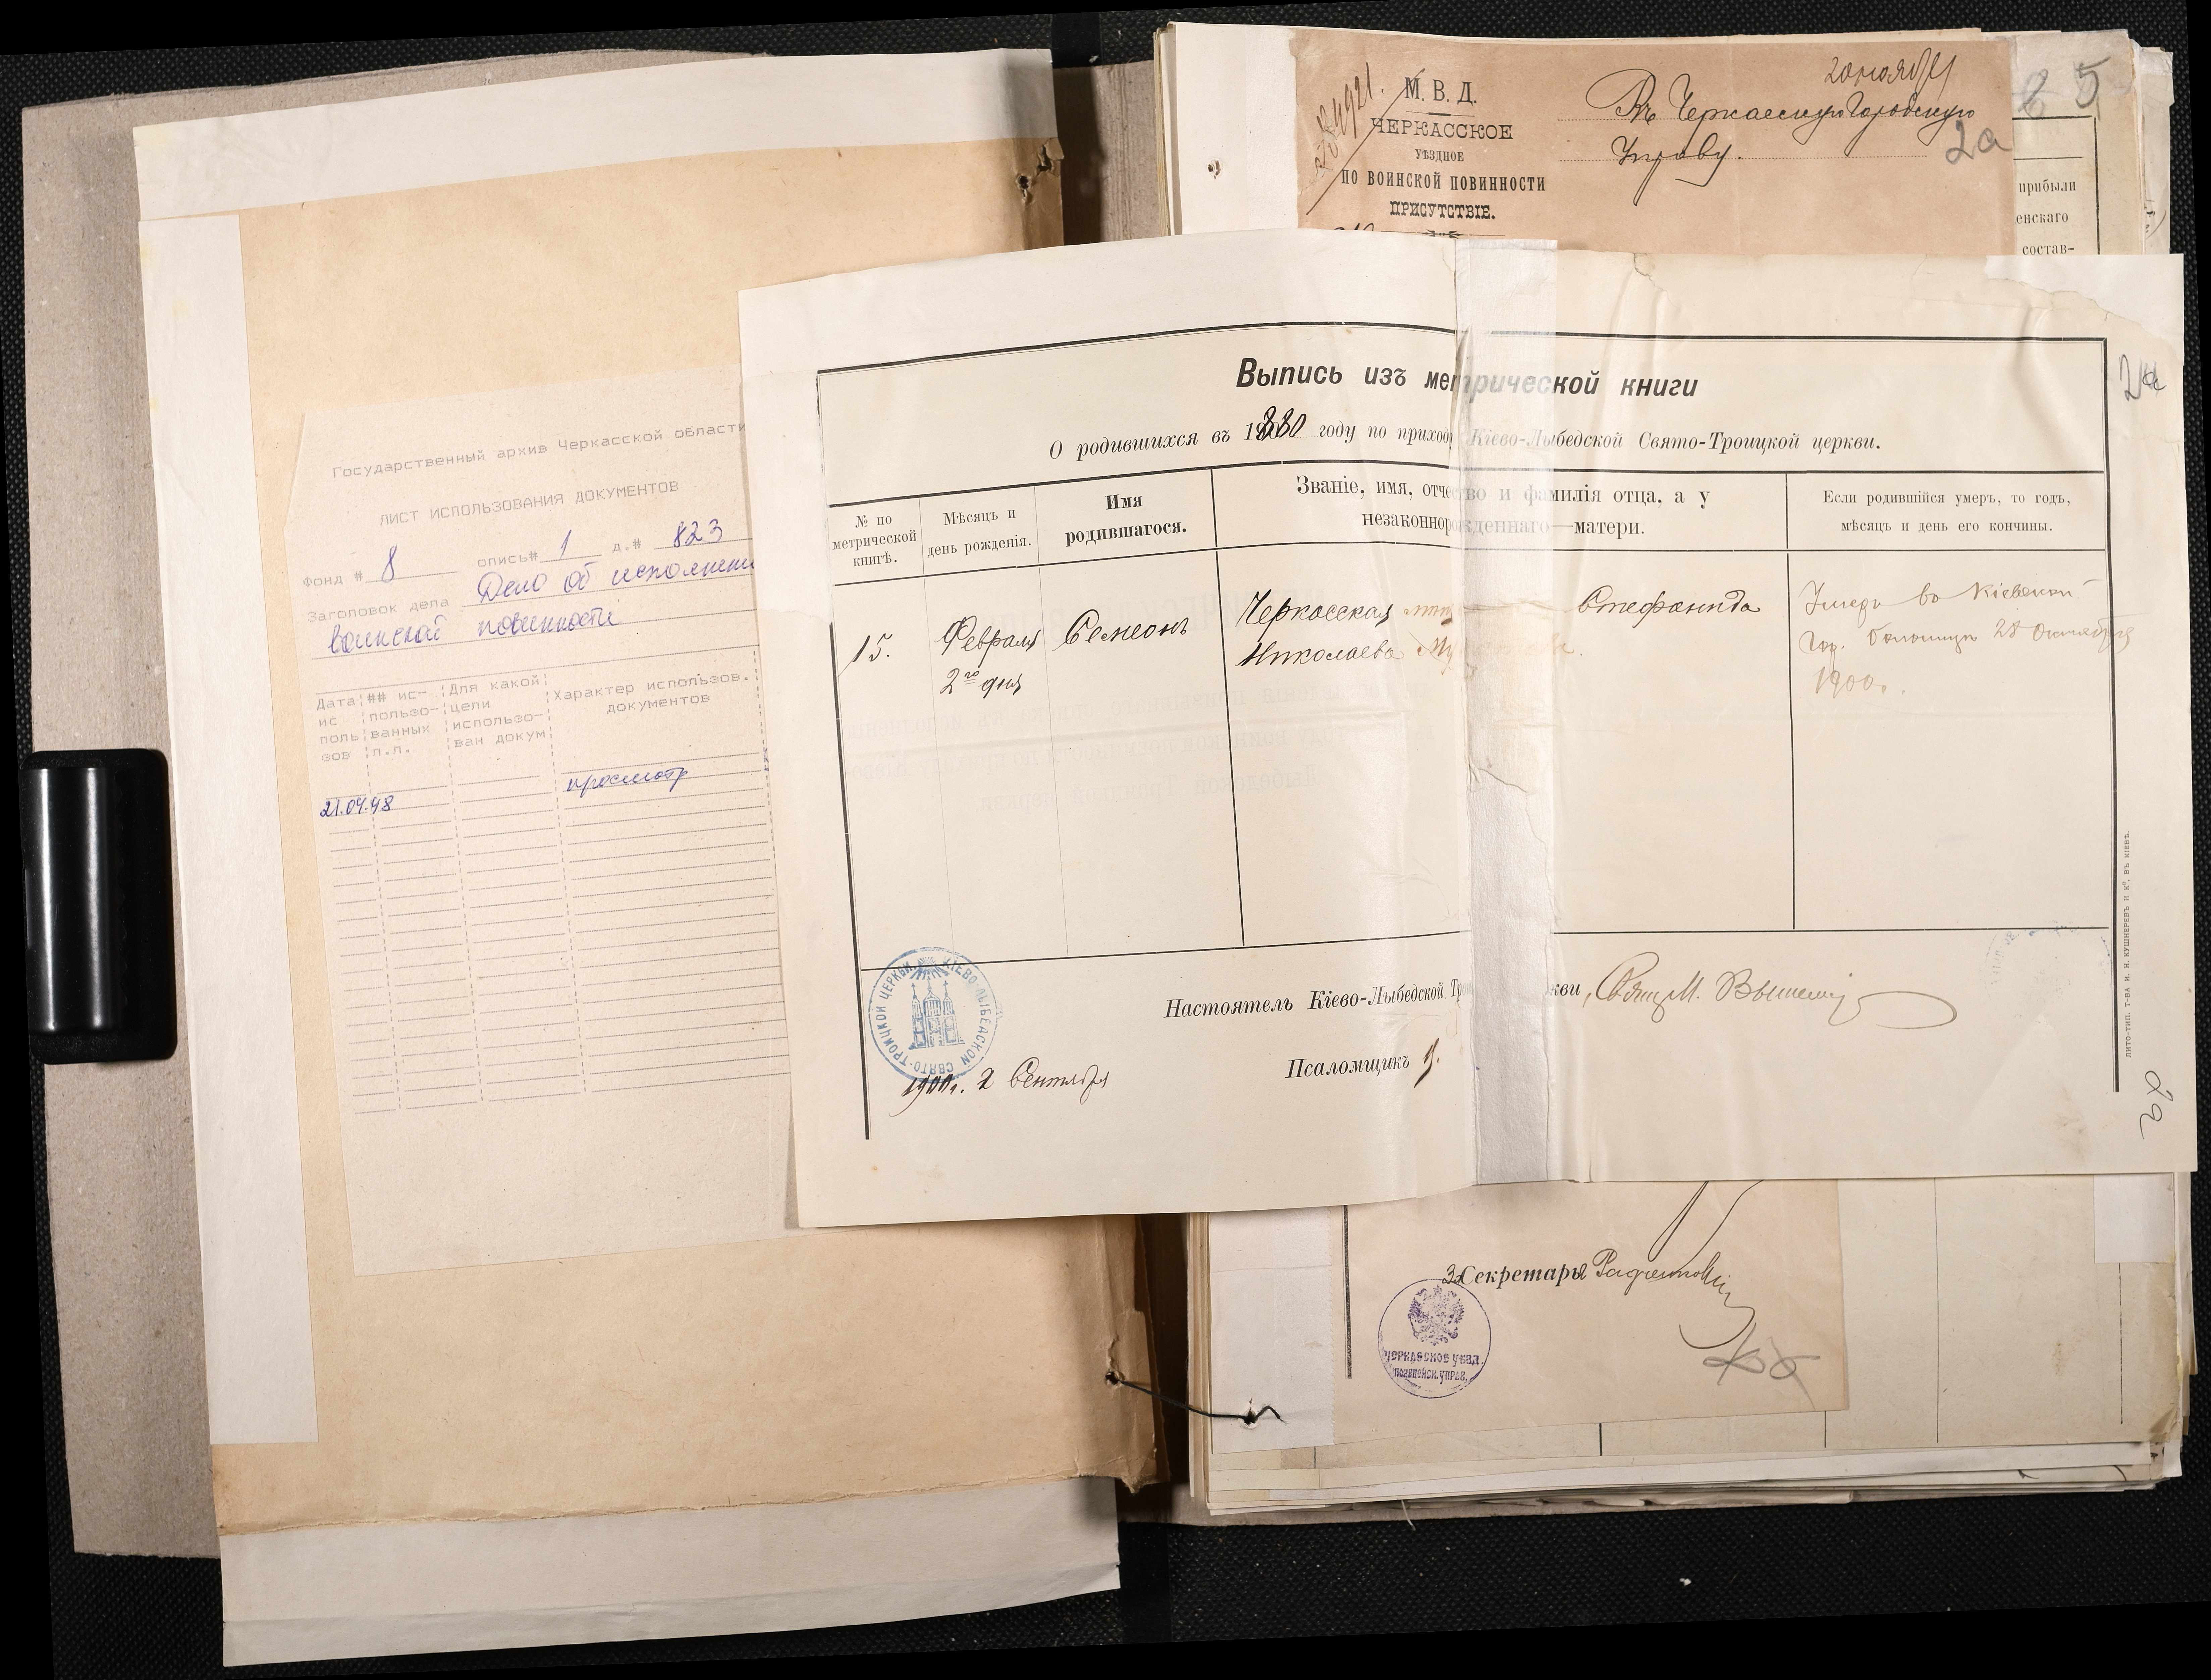 Государственный архив Черкасской области
ЛИСТ ИСПОЛЬЗОВАНИЯ ДОКУМЕНТОВ
Фонд # 8 опись# 1 д.# 823
Заголовок дела Дело об исполнени
воинской повинности
Дата ис поль зов
## ис- пользо- ванных п.л.
Для какой цели использо- ван докум
Характер использов. документов
21.04.98
просмотр
20 ноября
М. В. Д.
ЧЕРКАССКОЕ
УѢЗДНОЕ
ПО ВОИНСКОЙ ПОВИННОСТИ
ПРИСУТСТВІЕ.
Въ Черкасскую Городскую
Управу.
2а
5
прибыли
енскаго
состав-
Выпись изъ метрической книги
О родившихся въ 1880 году по приходу Кіево-Лыбедской Свято-Троицкой церкви.
№ по
метрической
книгѣ.
Мѣсяцъ и
день рожденія.
Имя
родившагося.
Званіе, имя, отчество и фамилія отца, а у
незаконнорожденнаго—матери.
Если родившійся умеръ, то годъ,
мѣсяцъ и день его кончины.
15.
Февраля
2го дня
Семеонъ
Черкасская Стефанида
Николаева
Умеръ во Кіевской
Гор. больницѣ 28 Октября
1900г.
КІЕВО-ЛЫБЕДСКОЙ СВЯТО-ТРОИЦКОЙ ЦЕРКВИ
Настоятель Кіево-Лыбедской Тро кви, Свящ. М.
1900г. 2 Сентября
Псаломщикъ
ЛИТО-ТИП. Т-ВА И. Н. КУШНЕРЕВЪ И К°, ВЪ КІЕВѢ.
За Секретаря
ЧЕРКАССКОЕ УѢЗД.
ПОЛИЦЕЙСК. УПРАВ.